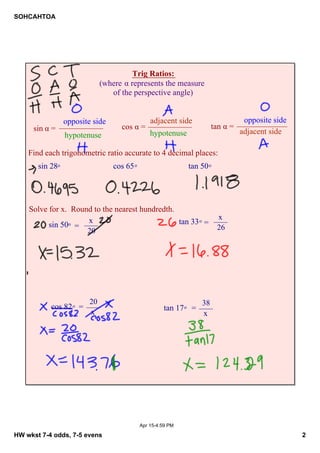 SOHCAHTOA
S C T
O A O
H H A
Trig Ratios:
(where α represents the measure
of the perspective angle)
O A O
sin α = opposite side / hypotenuse cos α = adjacent side / hypotenuse tan α = opposite side / adjacent side
H H A
Find each trigonometric ratio accurate to 4 decimal places:
sin 28° cos 65° tan 50°
0.4695 0.4226 1.1918
Solve for x. Round to the nearest hundredth.
20 sin 50° = x / 20 20 26 tan 33° = x / 26
X=15.32 X=16.88
X cos 82° = 20 / x X tan 17° = 38 / x
cos82 cos82 38 / tan17
X= 20 / cos82
X=143.71 X= 124.29
Apr 15-4:59 PM
HW wkst 7-4 odds, 7-5 evens 2